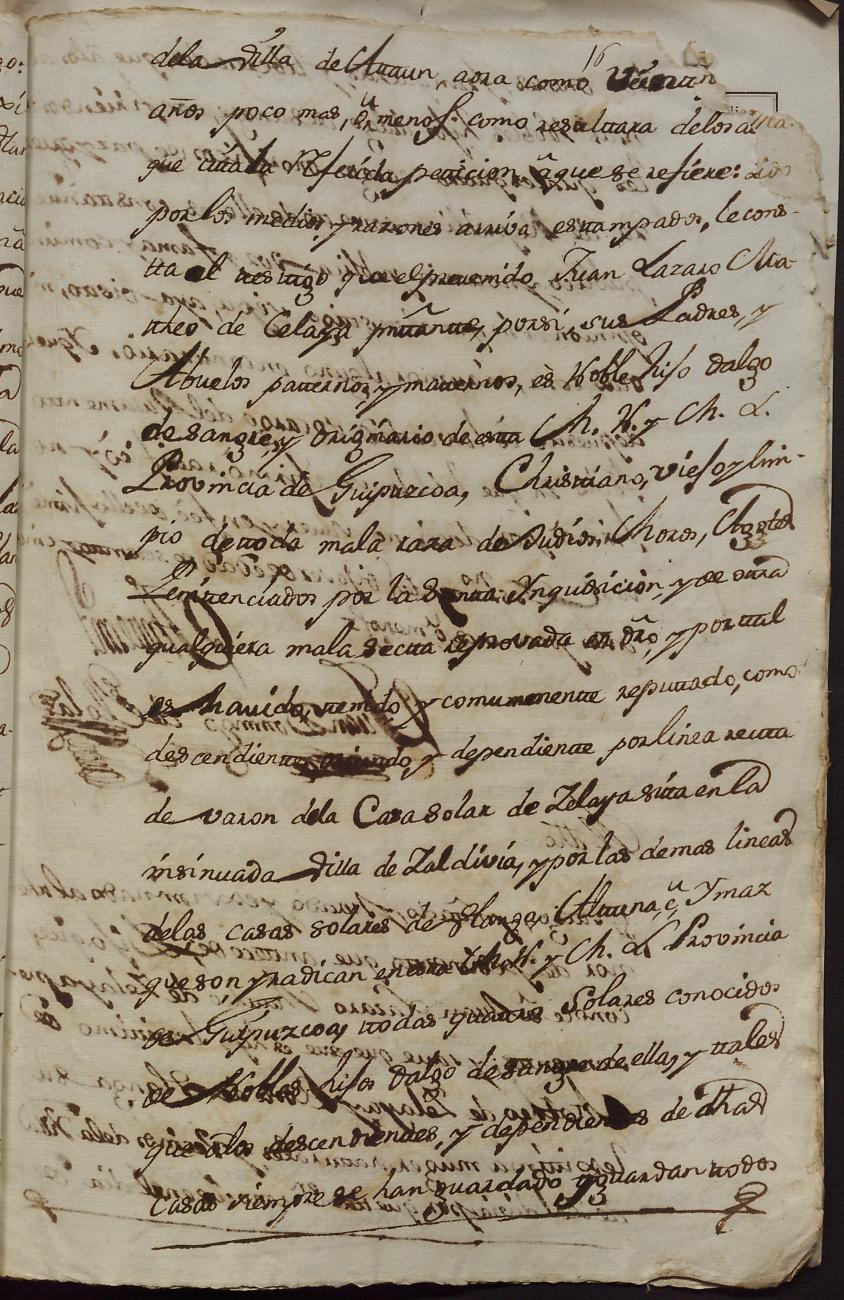 16
dela Villa de Ataun, aora como Veinte
años poco mas, ò menos: como resultara delos a
que cita la referida peticion à que se refiere:
por los medios, y razones arriva estampados, le cons-
tta al testigo que el prevenido Juan Lazaro Ma-
ttheo de Celaya, por si, sus Padres, y
Abuelos patternos, y matternos, es Noble hijo dalgo
de sangre, y originario de esta M. N. y M. L.
Provincia de Guipuzcoa, Christtiano, viejo y lim-
pio de toda mala raza de Judios, Moros, Agotes
Penitenciados por la Santa Ynquisicion, y de otra
qualquiera mala secta reprovada en dro, y por ttal
es havido, tenido, y comunmente reputtado, como
descendiente, y dependiente por linea recta
de varon dela Casa solar de Zelaya sita en la
insinuada Villa de Zaldivia, y por las demas lineas
delas casas solares de Olanga, Attuna, è Ymaz
que son y radican en esta M. N. y M. L. Provincia
de Guipuzcoa, ttodas quatro Solares conocidos
de Nobles hijos dalgo de sangre de ella, y ttales
que a los descendientes, y dependientes de dhas
casas siempre se han guardado y guardan ttodos